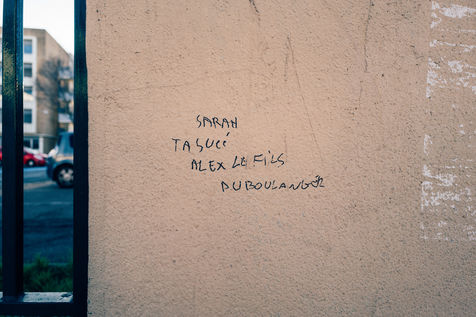 SARAH
TA SUCÉ
ALEX LE FILS
DU BOULANGER